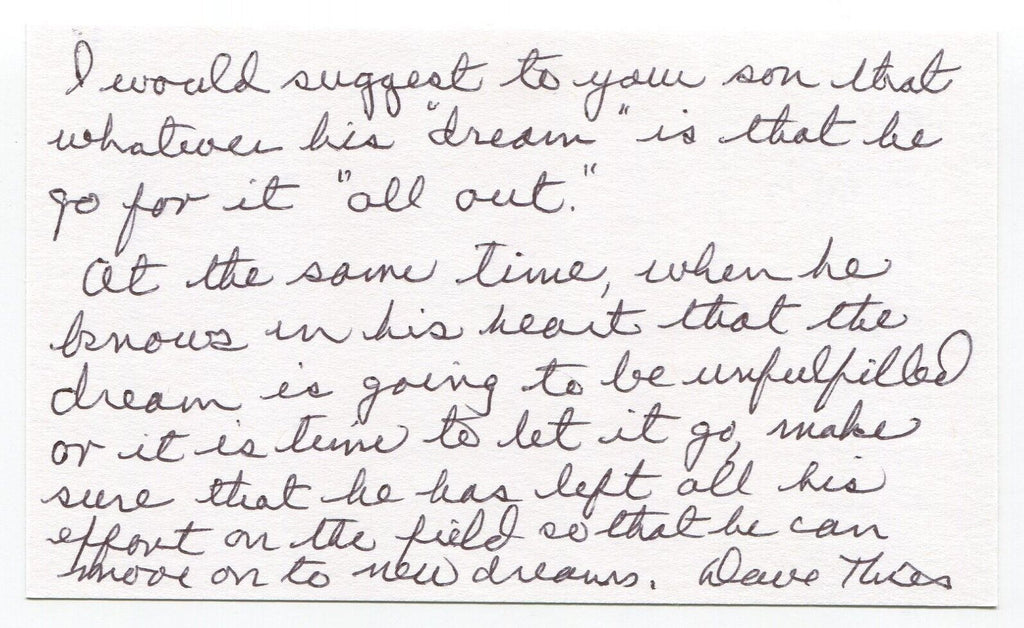 I would suggest to your son that
whatever his "dream" is that he
go for it "all out."
At the same time, when he
knows in his heart that the
dream is going to be unfulfilled
or it is time to let it go, make
sure that he has left all his
effort on the field so that he can
move on to new dreams. Dave Thies